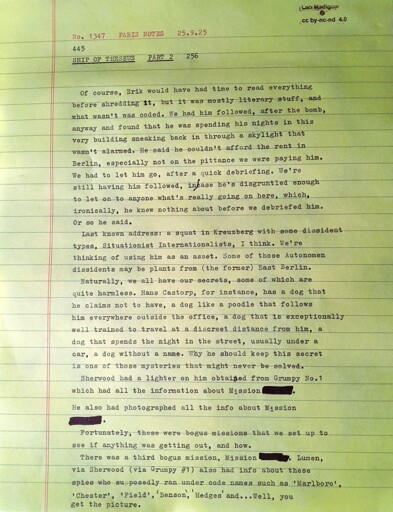 cc by-nc-nd 4.0
No. 1347 PARIS NOTES 25.9.25
445
SHIP OF THESEUS PART 2 256
Of course, Erik would have had time to read everything
before shredding it, but it was mostly literary stuff, and
what wasn't was coded. We had him followed, after the bomb,
anyway and found that he was spending his nights in this
very building sneaking back in through a skylight that
wasn't alarmed. He said he couldn't afford the rent in
Berlin, especially not on the pittance we were paying him.
We had to let him go, after a quick debriefing. We're
still having him followed, in case he's disgruntled enough
to let on to anyone what's really going on here, which,
ironically, he knew nothing about before we debriefed him.
Or so he said.
Last known address: a squat in Kreuzberg with some dissident
types, Situationist Internationalists, I think. We're
thinking of using him as an asset. Some of those Autonomen
dissidents may be plants from (the former) East Berlin.
Naturally, we all have our secrets, some of which are
quite harmless. Hans Castorp, for instance, has a dog that
he claims not to have, a dog like a poodle that follows
him everywhere outside the office, a dog that is exceptionally
well trained to travel at a discreet distance from him, a
dog that spends the night in the street, usually under a
car, a dog without a name. Why he should keep this secret
is one of those mysteries that might never be solved.
Sherwood had a lighter on him obtained from Grumpy No.1
which had all the information about Mission
He also had photographed all the info about Mission
.
Fortunately, these were bogus missions that we set up to
see if anything was getting out, and how.
There was a third bogus mission, Mission . Lumen,
via Sherwood (via Grumpy #1) also had info about these
spies who supposedly ran under code names such as 'Marlboro',
'Chester', 'Field', 'Benson,' 'Hedges' and...Well, you
get the picture.